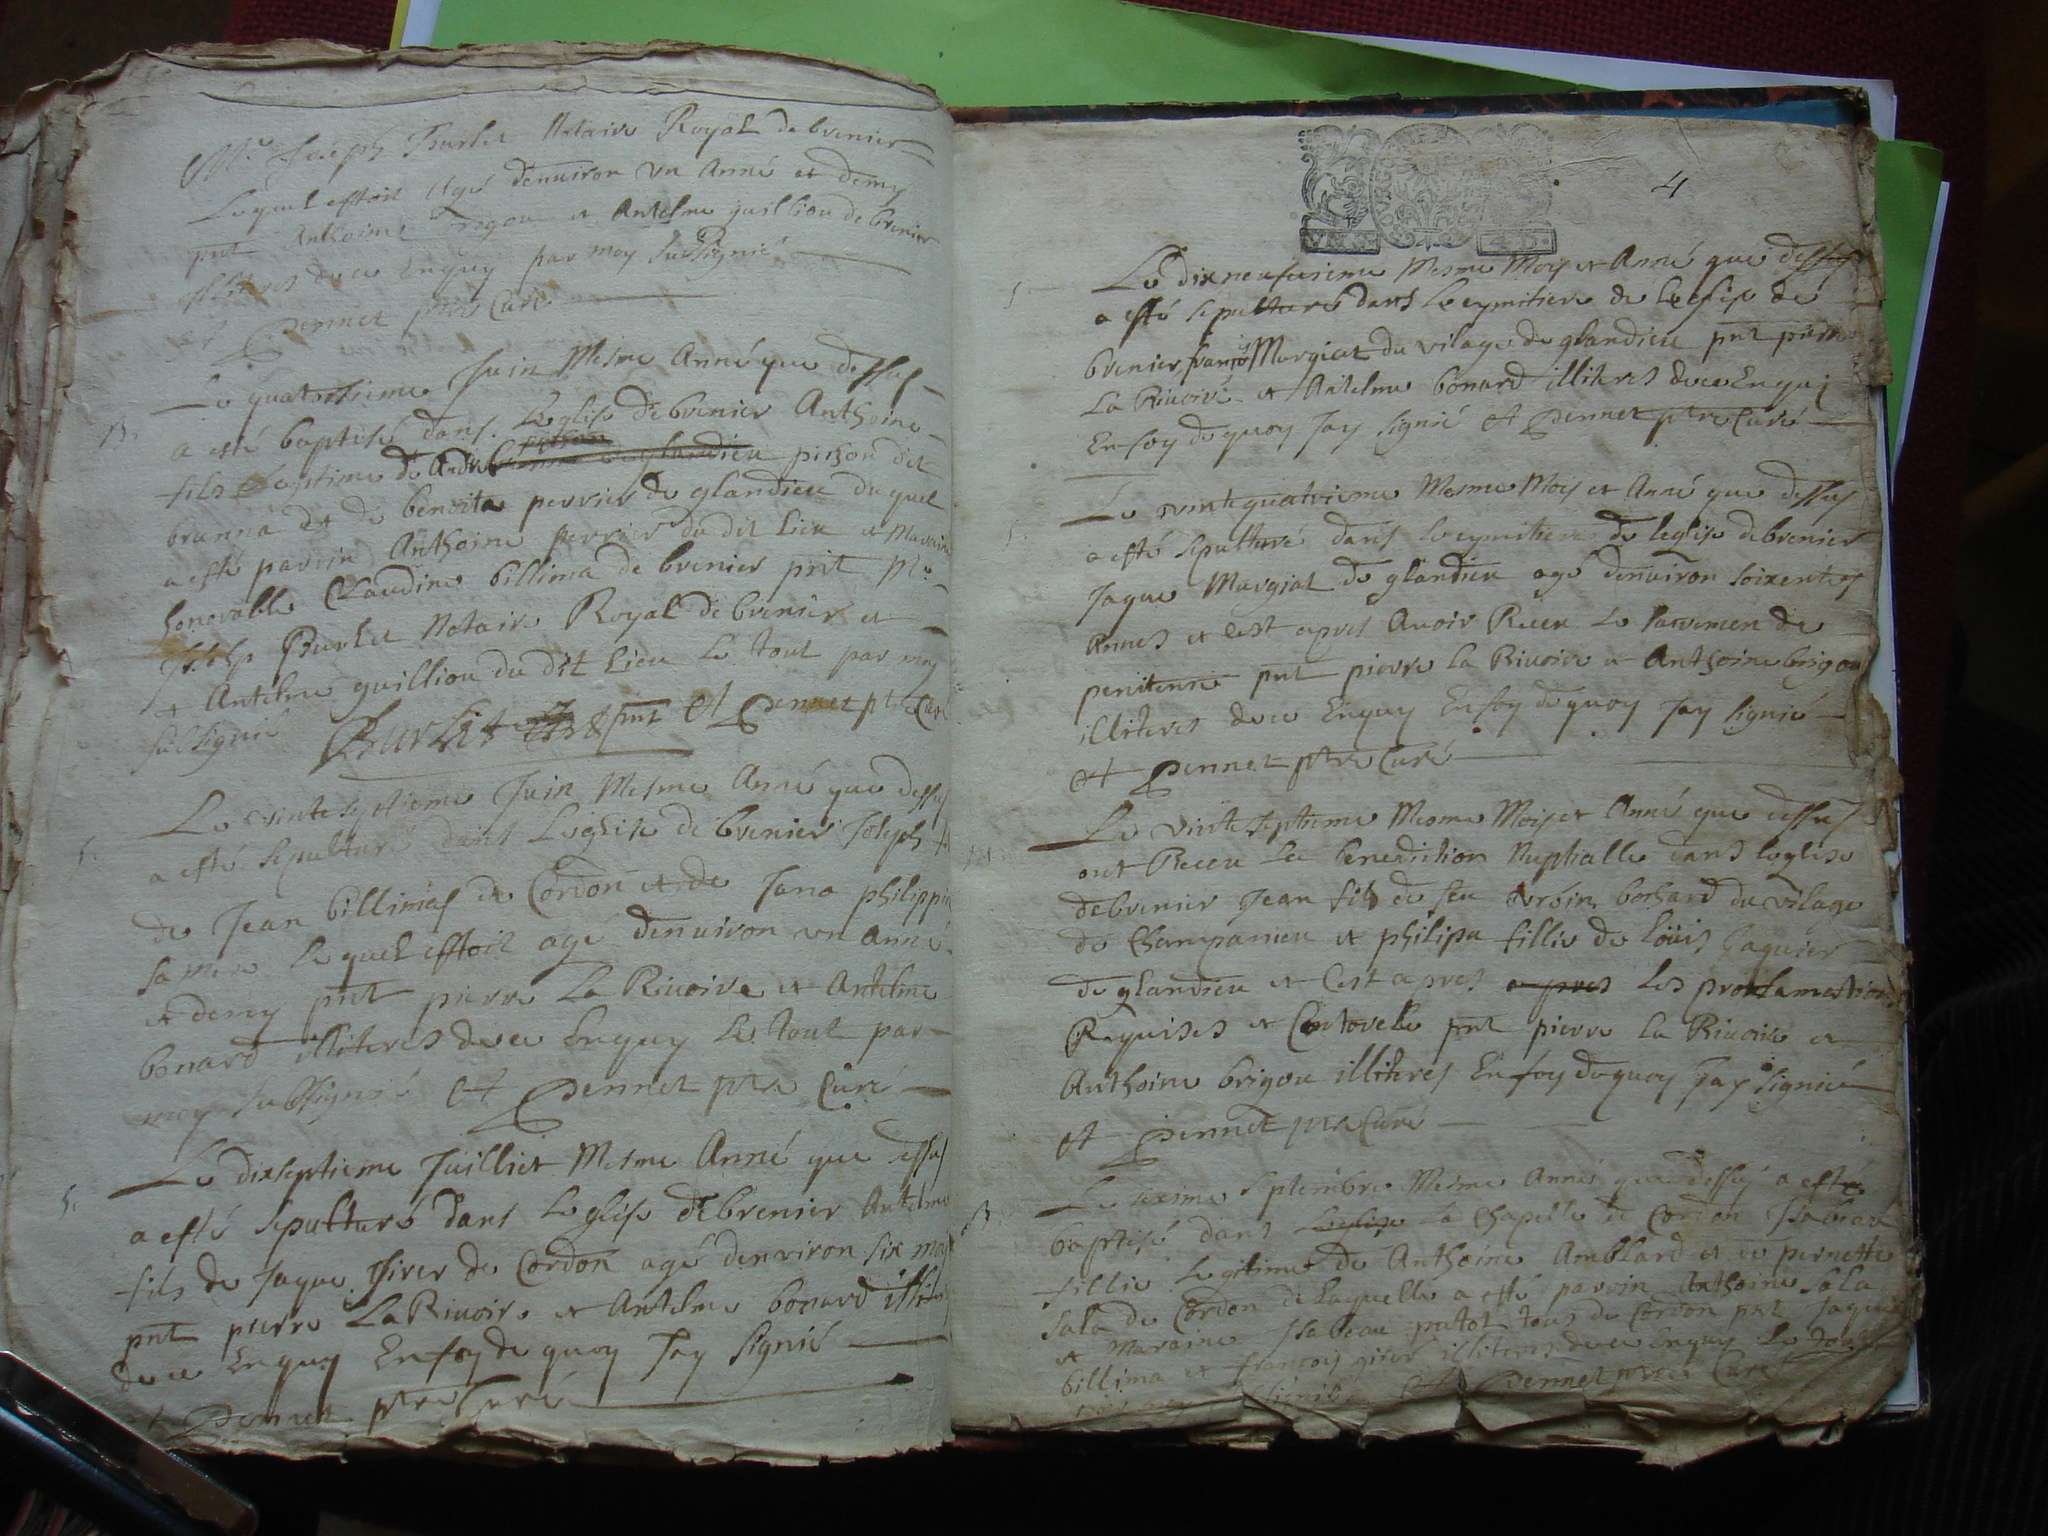 Mr Joseph Burlet Notaire Royal de brenier
Lequel estoit agé denuiron un Anné et demy
pnt Anthoine et Antelme guilliou de brenier
illiteres de ce Enquy par moy subsignié
et Pennet ptre Curé
Le quatorsieme Juin Mesme Anné que dessus
B. a esté baptisé dans Leglise de brenier Anthoine
fils de glandieu pison dit
brunna et de benoite perrier de glandieu duquel
a esté parrin Anthoine perrier du dit Lieu et Maraine
honorable Claudine billima de brenier pnt Mr
Joseph Burlet Notaire Royal de brenier et
et Antelme guilliou du dit Lieu Le tout par moy
subsignié Burlet pnt et Pennet ptre Curé
Le vinte septieme Juin Mesme Anné que dessus
S. a esté sepulturé dans Leglise de brenier Joseph
de Jean billimas de Cordon et de Jana philippe
sa mere Lequel estoit agé denuiron un Anné
et demy pnt pierre La Riuoire et Antelme
bonard illiteres de ce Enquy Le tout par
moy subsignié et Pennet ptre Curé
Le dixseptieme Juilliet Mesme Anné que dessus
S. a esté sepulturé dans Leglise de brenier Antelme
fils de Jaque girer de Cordon agé denviron six moys
pnt pierre La Riuoire et Antelme bonard illiteres
de ce Enquy En foy de quoy Jay signié
et Pennet ptre Curé
4
UN S. 4 D.
Le dixneufuieme Mesme Mois et Anné que dessus
a esté sepulturé dans Le cymitiere de Leglise de
brenier françois Murgiat du vilage de glandieu pnt pierre
La Riuoire et Antelme bonard illiteres de ce Enquy
En foy de quoy Jay signié et Pennet ptre Curé
Le vinte quatrieme Mesme Mois et Anné que dessus
a esté sepulturé dans Le cymitiere de leglise de brenier
Jaque Murgiat de glandieu agé denuiron soixentes
Annes et cest apres Auoir Receu Le sacremen de
penitense pnt pierre La Riuoire et Anthoine brigou
illiteres de ce Enquy En foy de quoy Jay signié
et Pennet ptre Curé
Le vinte septieme Mesme Mois et Anné que dessus
M. ont Receu La benediction Nuptialle dans leglise
de brenier Jean fils de feu bochard du vilage
de Champanieu et philipa fillie de Loüis Jaquier
de glandieu et Cest apres apres Les proclamations
Requises et Controlle pnt pierre La Riuoire et
Anthoine brigou illiteres En foy de quoy Jay signié
et Pennet ptre Curé
Le sixime septembre Mesme Anné que dessus a esté
B. baptisé dans Leglise La Chapelle de Cordon Isabeau
fillie Legitime de Anthoine Amblard et de pernette
Sala de Cordon de Laquelle a esté parrin Anthoine Sala
et Maraine Isabeau putot tous de Cordon pnt Jaque
billima et françois girer illiteres de ce Enquy Le tout
et Pennet ptre Curé